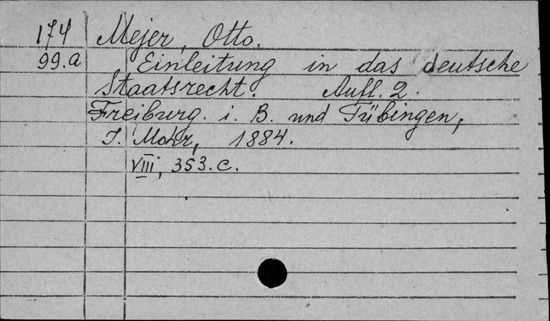 174 Mejer, Otto.
99.a Einleitung in das deutsche
Staatsrecht. Aufl. 2.
Freiburg. i. B. und Tübingen,
J. Mohr, 1884.
VIII, 353. c.